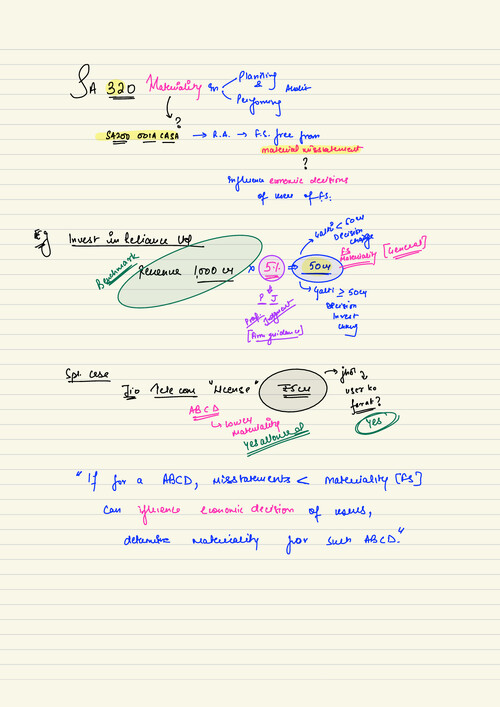 SA 320 Materiality in Planning & Performing Audit
?
SA200 OOIA CASA → R.A. → F.S. free from
material misstatement
?
Influence economic decisions
of users of FS.
Eg Invest in Reliance
Benchmark
Revenue 1,000 cr × 5% = 50 cr
Galti < 50cr
Decision
change
FS
Materiality [General]
P J
Prof. Judgment
[Firm guidance]
Galti ≥ 50cr
Decision
Invest
Spl. case
Jio Telecom "License"
just
user ko
Yes
ABCD
↳ Lower
Materiality
Yes allowed
"If for a ABCD, misstatements < materiality [FS]
can ifluence economic decision of users,
determine materiality for such ABCD."